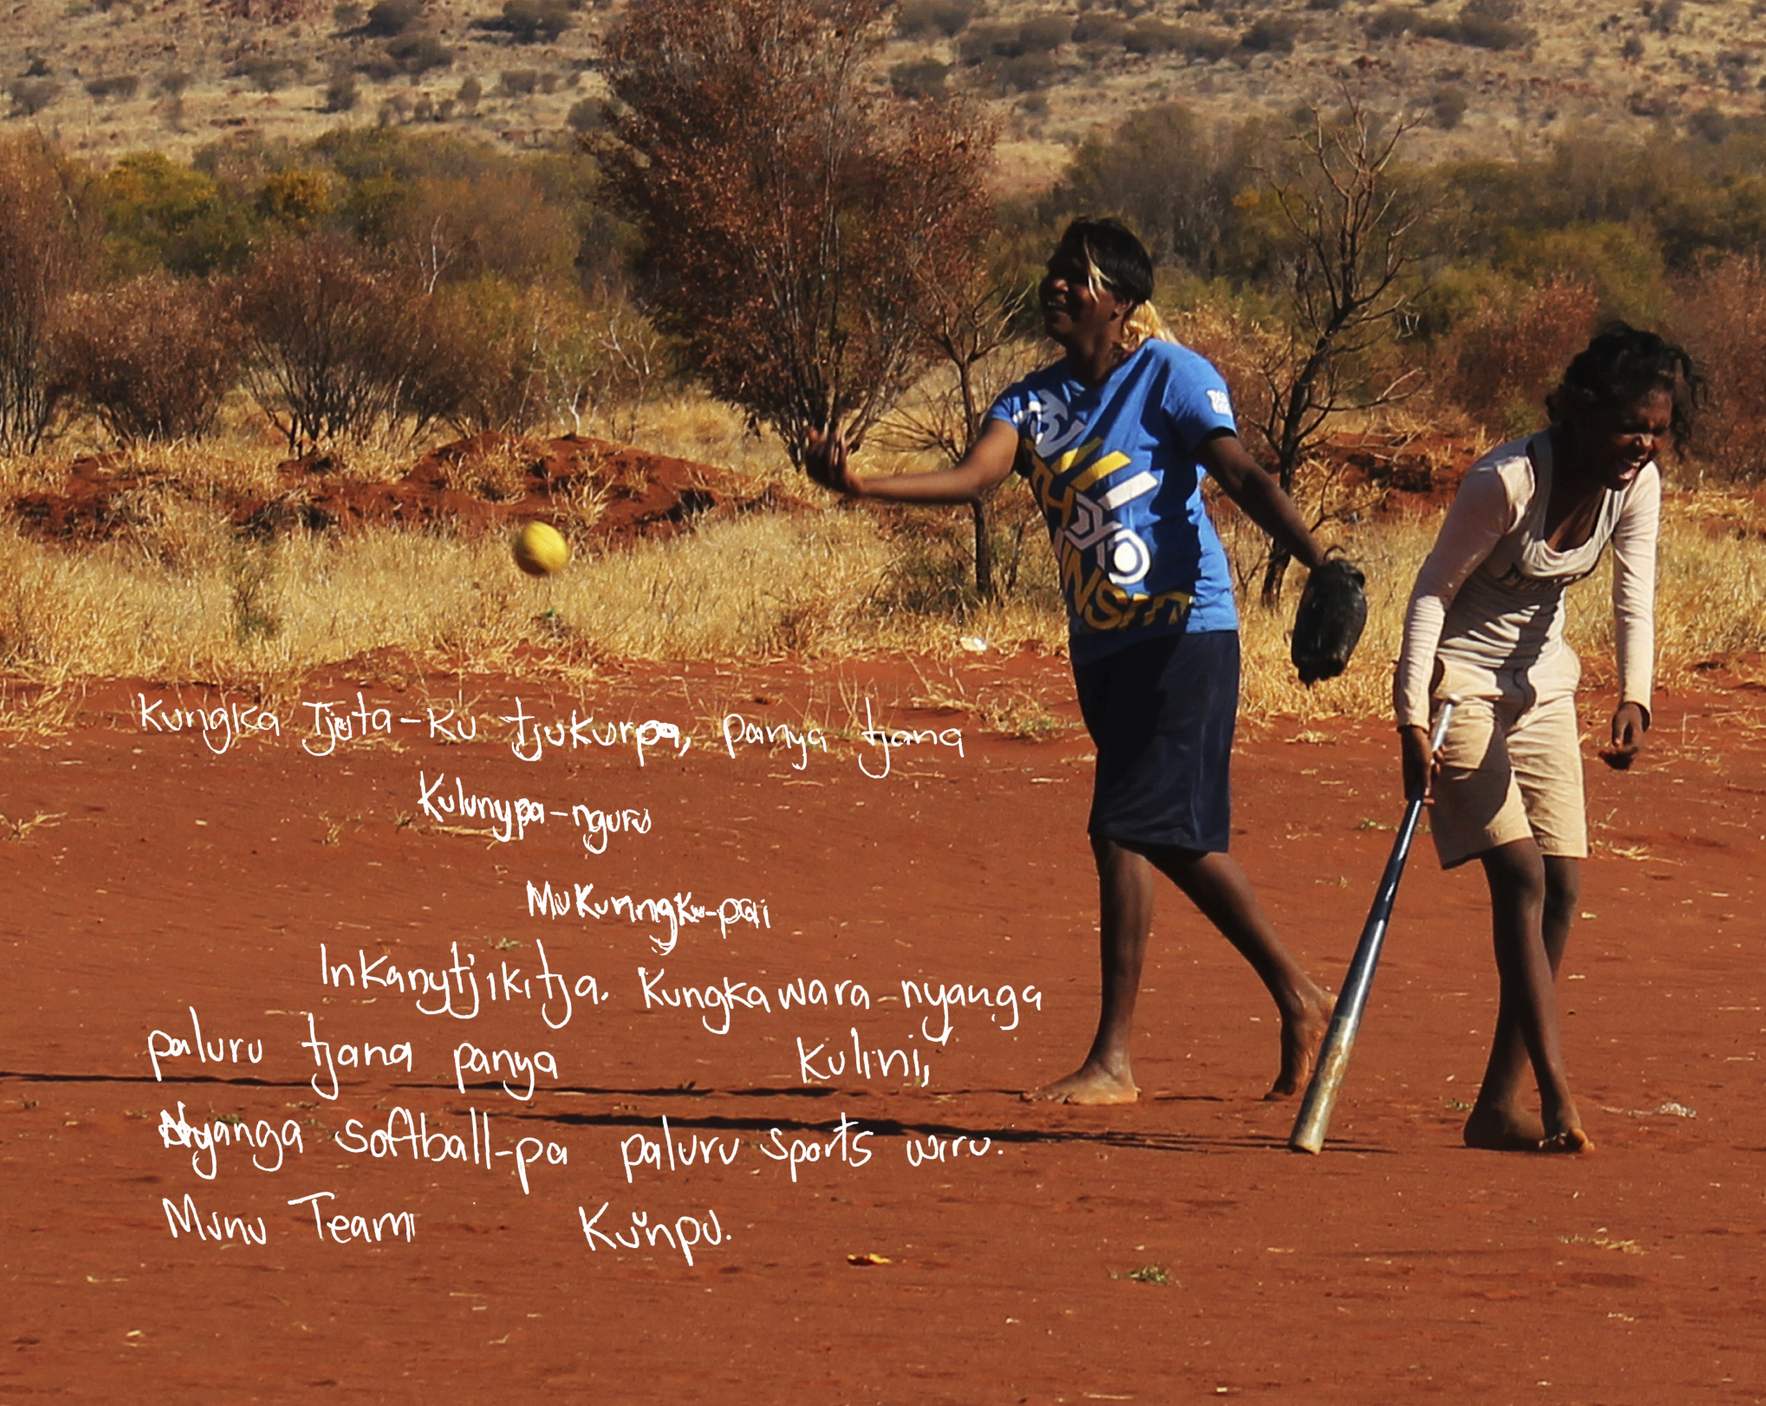 Kungka Tjuta-ku tjukurpa, panya tjana
Kulunypa-nguru
Mukuringku-pai
Inkanytjikitja. Kungkawara nyanga
paluru tjana panya kulini,
Nyanga softball-pa paluru sports wiru.
Munu Team Kunpu.